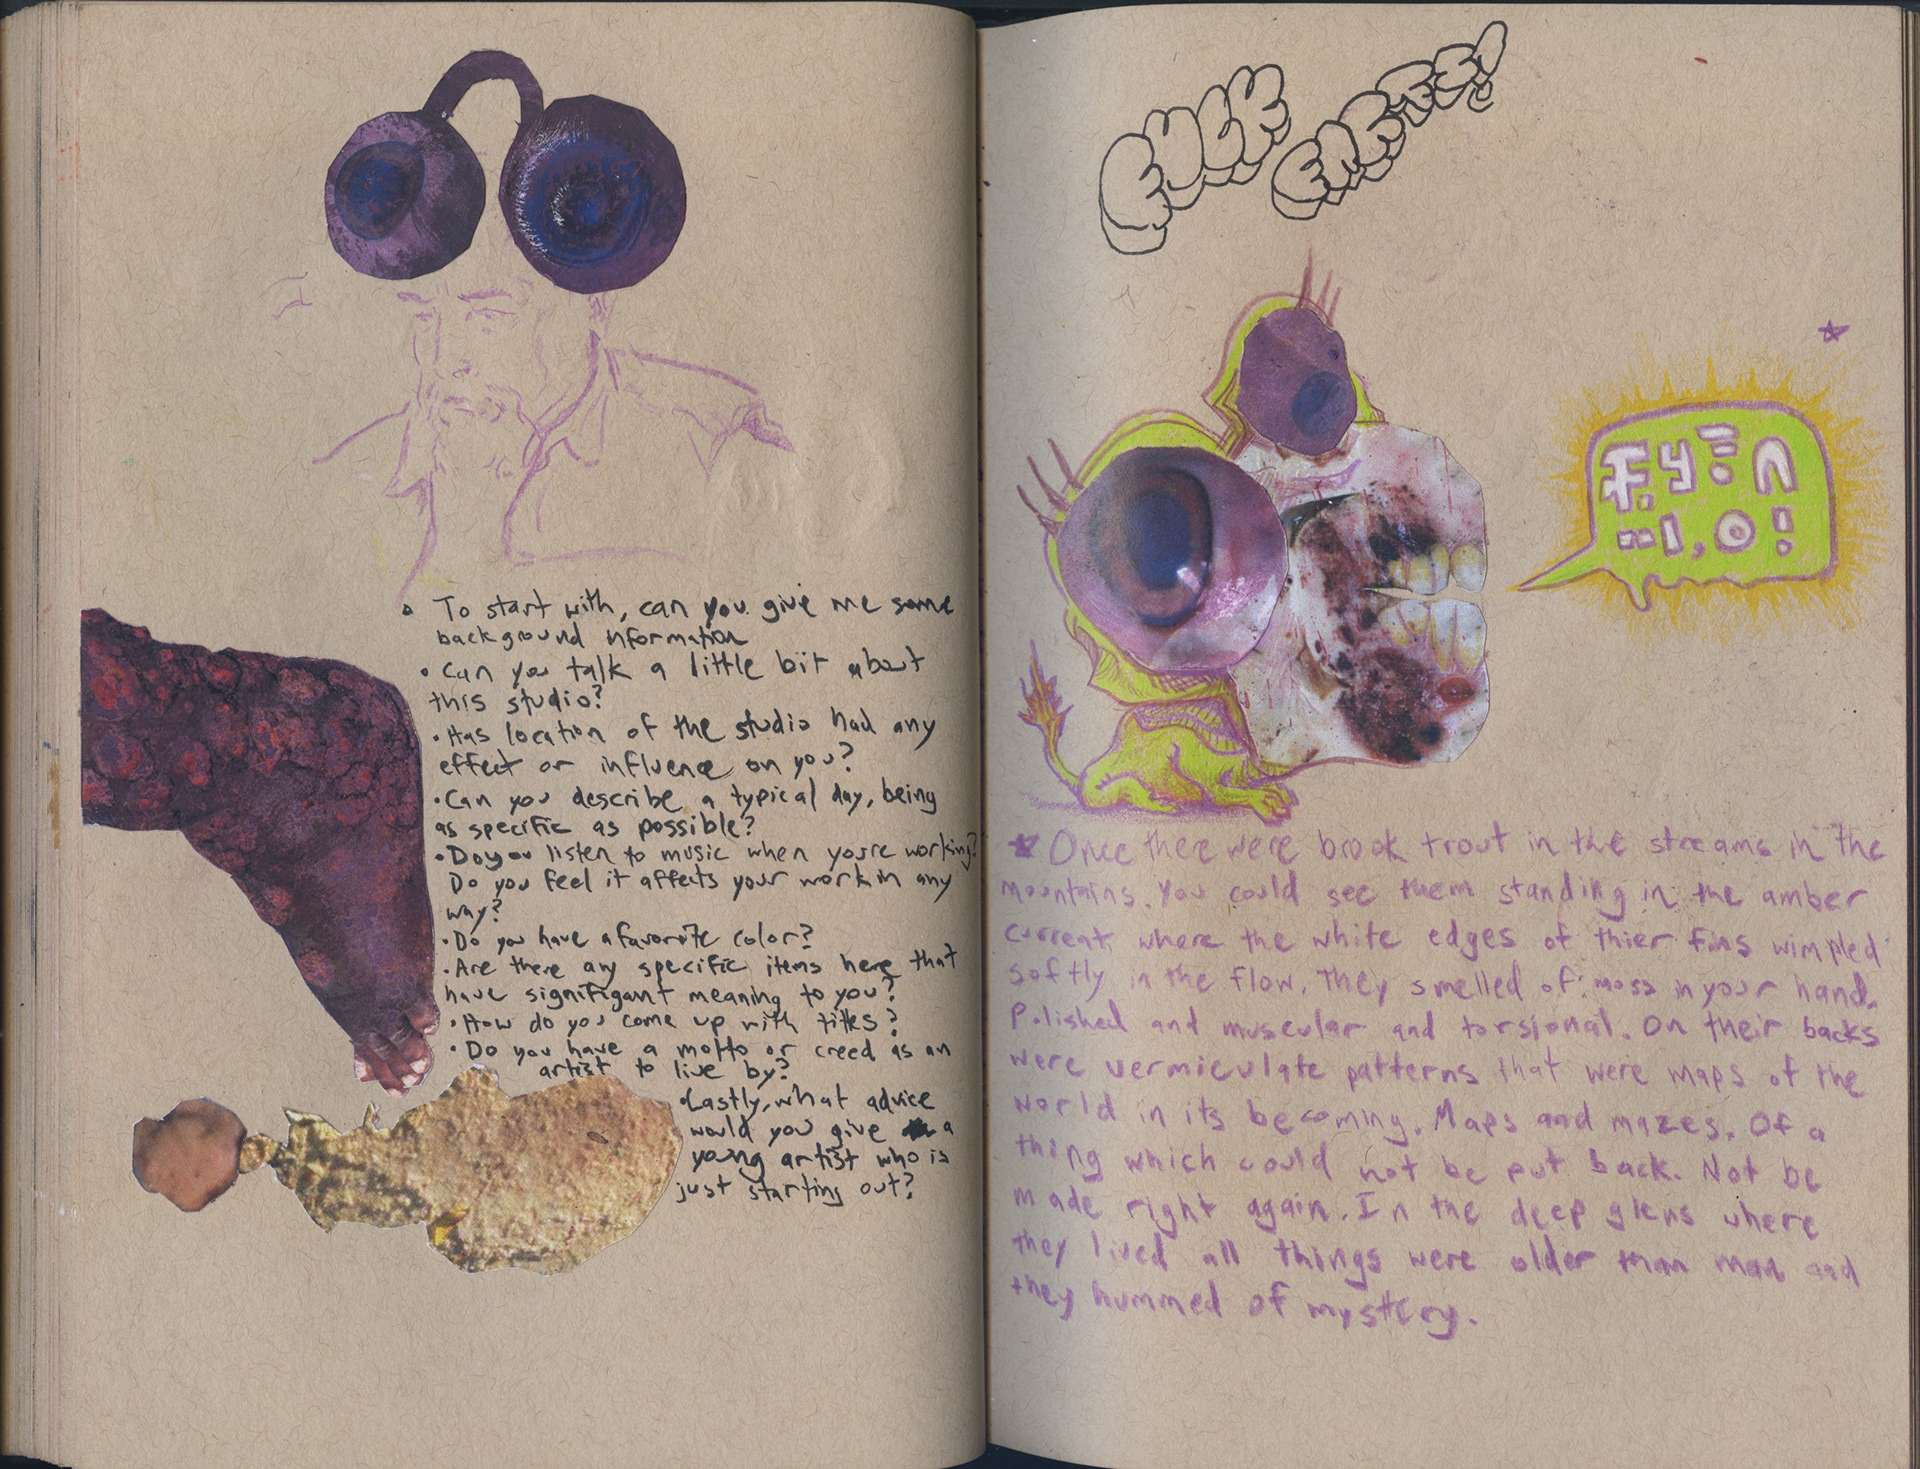 • To start with, can you give me some
background information
• Can you talk a little bit about
this studio?
• Has location of the studio had any
effect or influence on you?
• Can you describe a typical day, being
as specific as possible?
• Do you listen to music when you're working?
Do you feel it affects your work in any
way?
• Do you have a favorite color?
• Are there any specific items here that
have signifigant meaning to you?
• How do you come up with titles?
• Do you have a motto or creed as an
artist to live by?
• Lastly, what advice
would you give a
young artist who is
just starting out?
FUCK
★ Once there were brook trout in the streams in the
mountains. You could see them standing in the amber
current where the white edges of thier fins wimpled
softly in the flow. They smelled of moss in your hand.
Polished and muscular and torsional. On their backs
were vermiculate patterns that were maps of the
world in its becoming. Maps and mazes. Of a
thing which could not be put back. Not be
made right again. In the deep glens where
they lived all things were older than man and
they hummed of mystery.